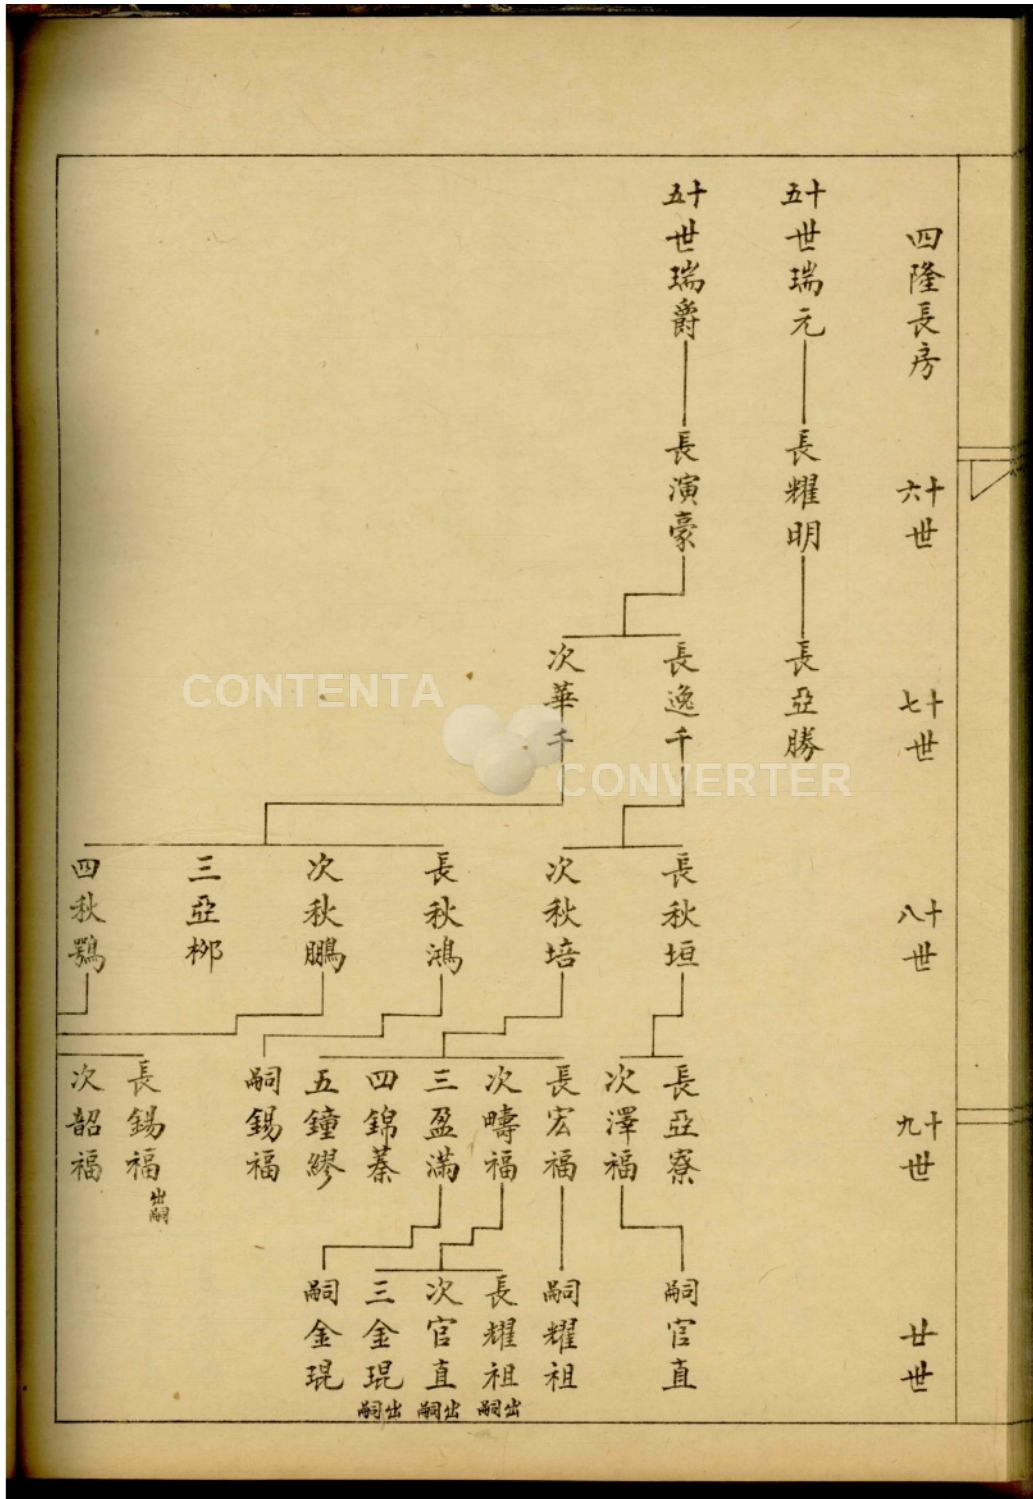 四隆長房
十六世
十七世
十八世
十九世
廿世
十五世瑞元
長耀明
長亞勝
十五世瑞爵
長演豪
長逸千
次華千
長秋垣
次秋培
長秋鴻
次秋鵬
三亞柳
四秋鶚
長亞寮
次澤福
長宏福
次疇福
三盈滿
四錦蓁
五鐘繆
嗣錫福
長錫福 出嗣
次韶福
嗣官直
嗣耀祖
長耀祖 出嗣
次官直 出嗣
三金琨 出嗣
嗣金琨
CONTENTA
CONVERTER